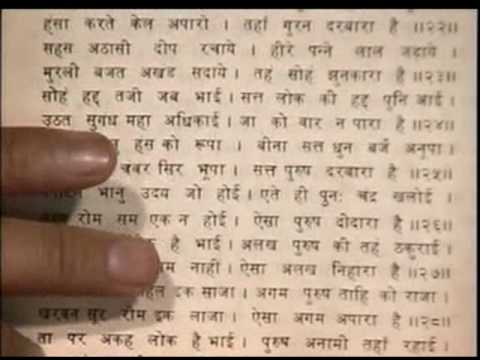 हंसा करते केल अपारो । तहाँ गूरन दरबारा है ॥२२॥
सहस अठासी दीप रचाये । हीरे पन्ने लाल जड़ाये ।
मुरली बजत अखंड सदाये । तहं सोहं झुनकारा है ॥२३॥
सोहं हद्द तजी जब भाई । सत्त लोक की हद्द पुनि आई ।
उठत सुगंध महा अधिकाई । जा को वार न पारा है ॥२४॥
हंस को रूपा । बीना सत्त धुन बजै अनूपा ।
चंवर सिर भूपा । सत्त पुरुष दरबारा है ॥२५॥
भानु उदय जो होई । एते ही पुनः चंद्र खलोई ।
रोम सम एक न होई । ऐसा पुरुष दीदारा है ॥२६॥
है भाई । अलख पुरुष की तहं ठकुराई ।
नाहीं । ऐसा अलख निहारा है ॥२७॥
इक साजा । अगम पुरुष ताहि को राजा ।
खरबन सूर रोम इक लाजा । ऐसा अगम अपारा है ॥२८॥
ता पर अकह लोक है भाई । पुरुष अनामी तहाँ रहाई ।